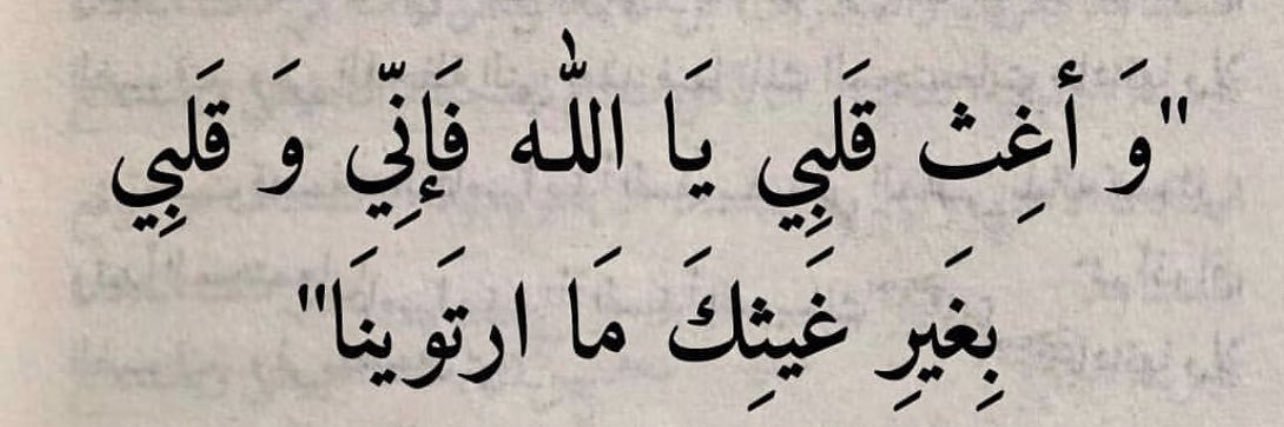 "وَ أغِث قَلبِي يَا اللّٰه فَإِنِّي وَ قَلبِي
بِغَيرِ غَيثِكَ مَا ارتَوينَا"